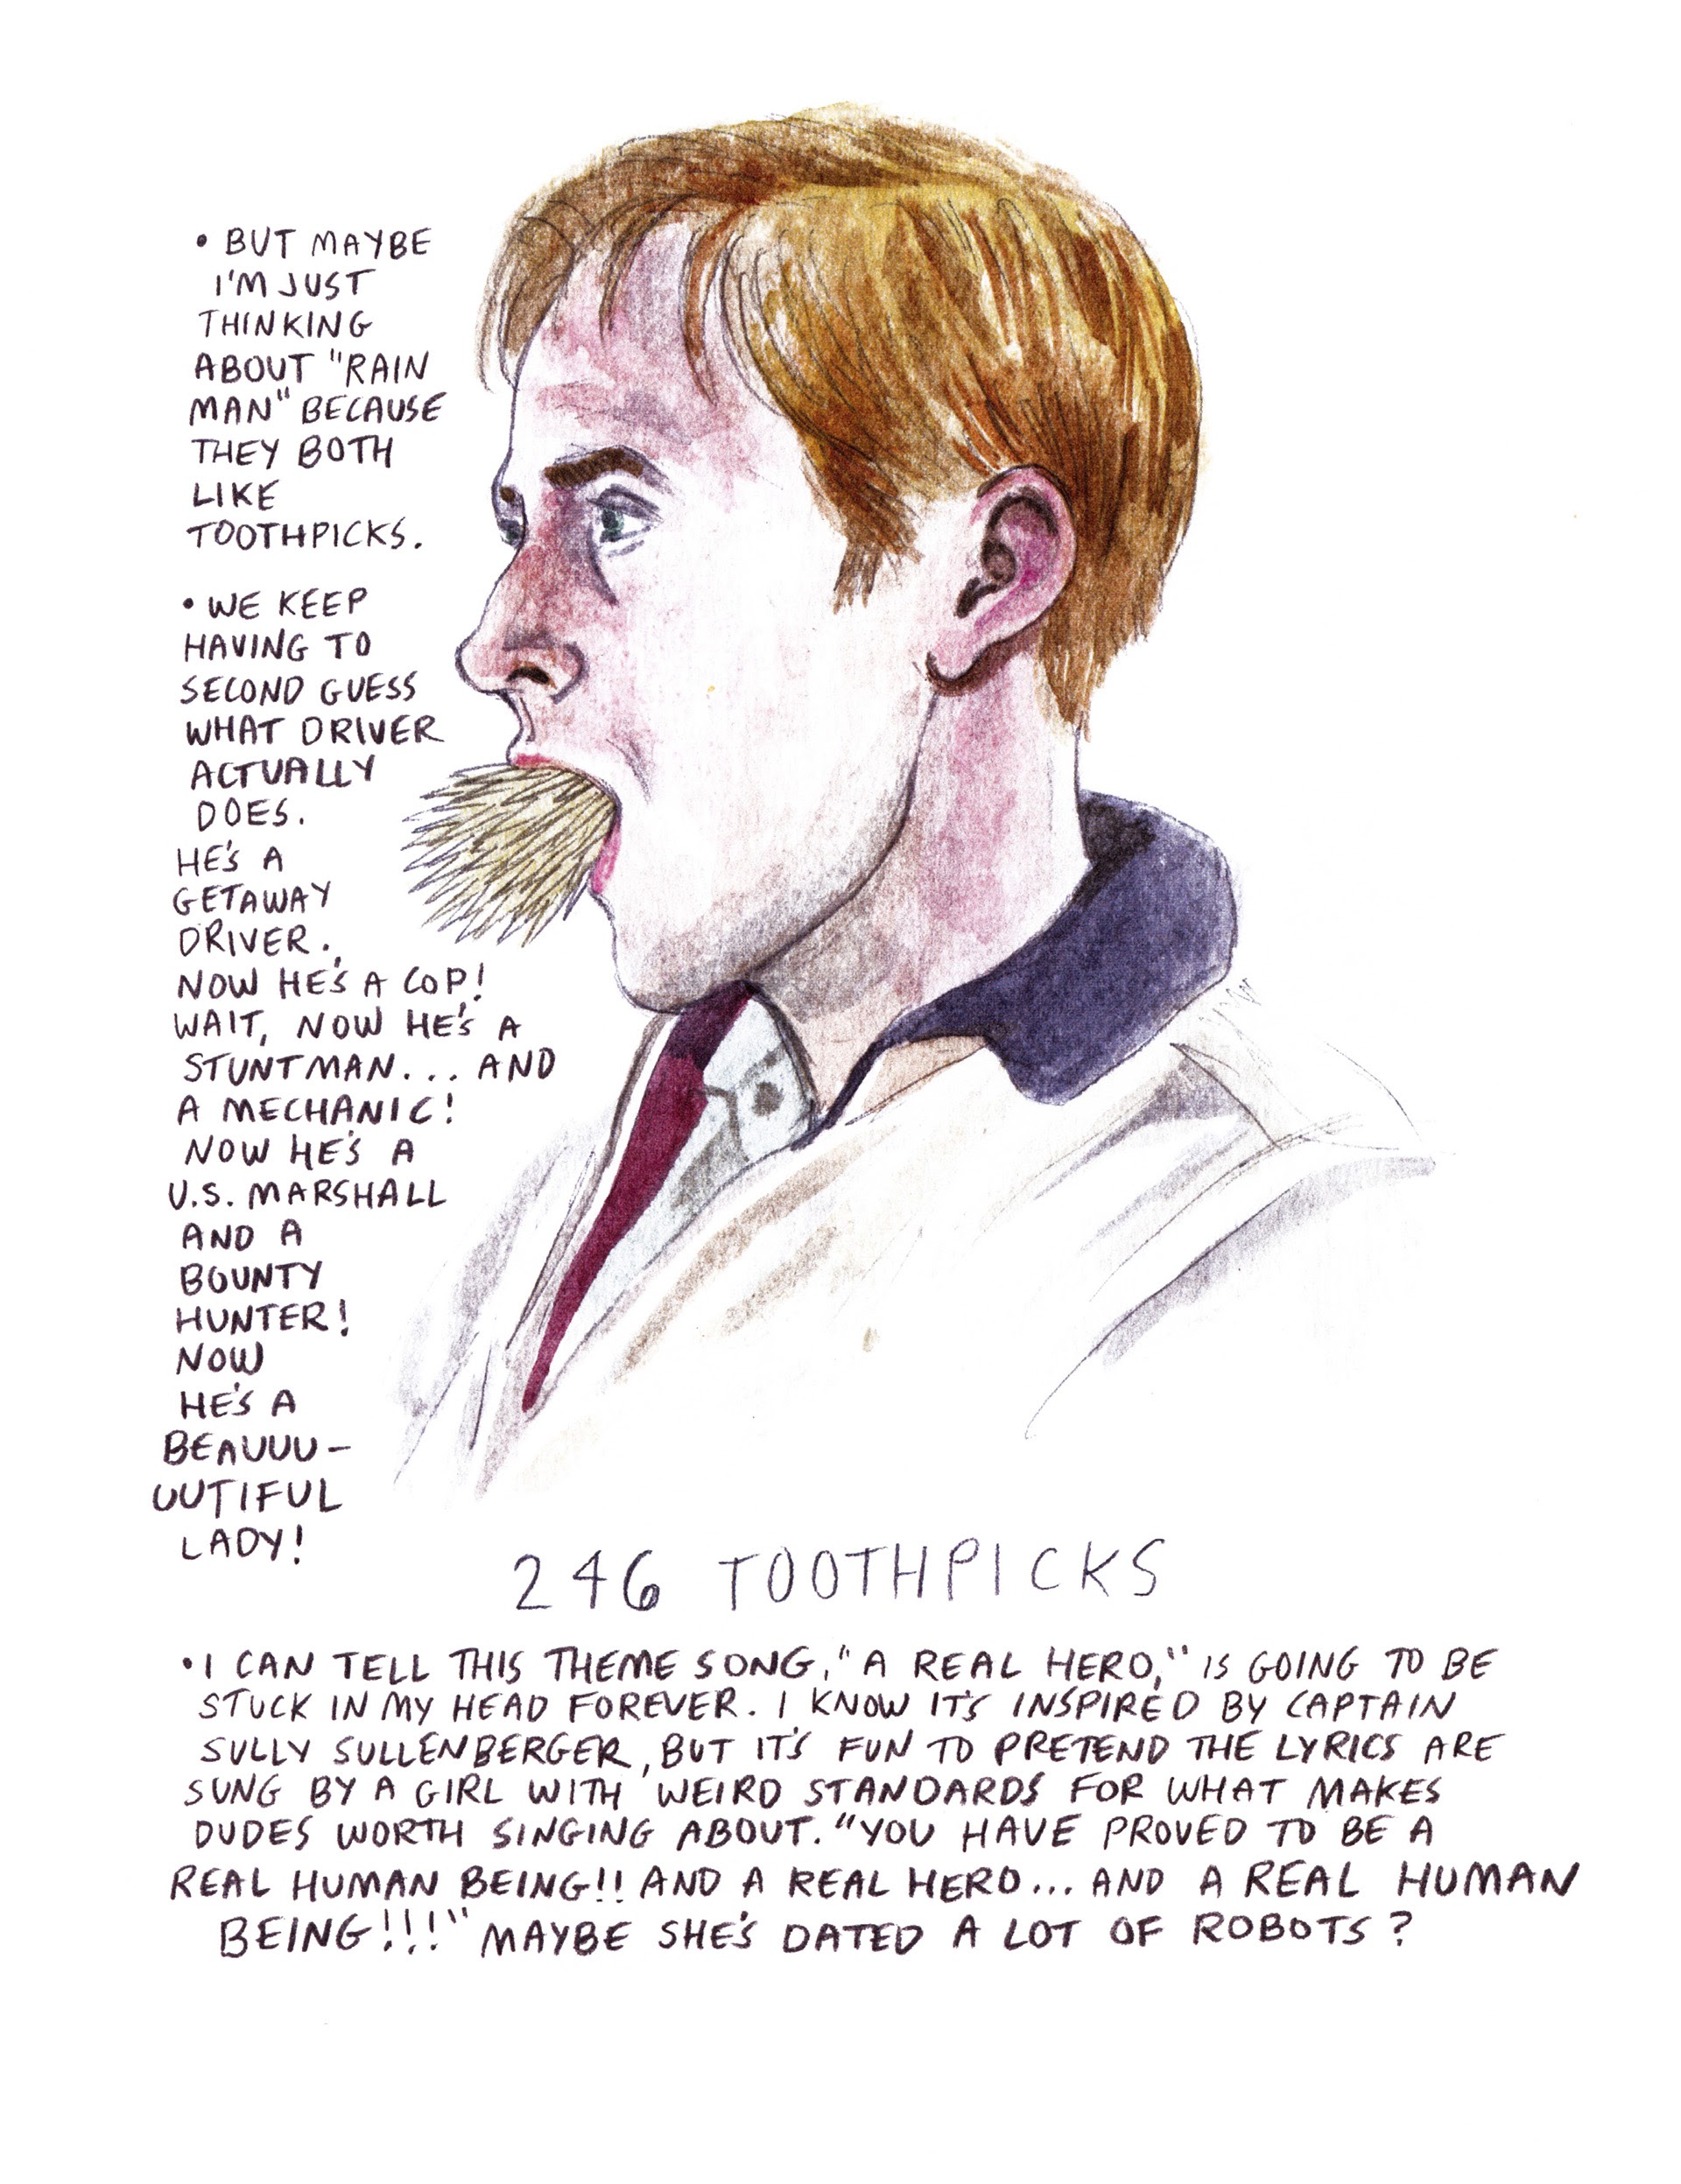 • BUT MAYBE
I'M JUST
THINKING
ABOUT "RAIN
MAN" BECAUSE
THEY BOTH
LIKE
TOOTHPICKS.
• WE KEEP
HAVING TO
SECOND GUESS
WHAT DRIVER
ACTUALLY
DOES.
HE'S A
GETAWAY
DRIVER.
NOW HE'S A COP!
WAIT, NOW HE'S A
STUNTMAN... AND
A MECHANIC!
NOW HE'S A
U.S. MARSHALL
AND A
BOUNTY
HUNTER!
NOW
HE'S A
BEAUUU-
UUTIFUL
LADY!
246 TOOTHPICKS
• I CAN TELL THIS THEME SONG, "A REAL HERO," IS GOING TO BE
STUCK IN MY HEAD FOREVER. I KNOW IT'S INSPIRED BY CAPTAIN
SULLY SULLENBERGER, BUT IT'S FUN TO PRETEND THE LYRICS ARE
SUNG BY A GIRL WITH WEIRD STANDARDS FOR WHAT MAKES
DUDES WORTH SINGING ABOUT. "YOU HAVE PROVED TO BE A
REAL HUMAN BEING!! AND A REAL HERO... AND A REAL HUMAN
BEING!!!" MAYBE SHE'S DATED A LOT OF ROBOTS?